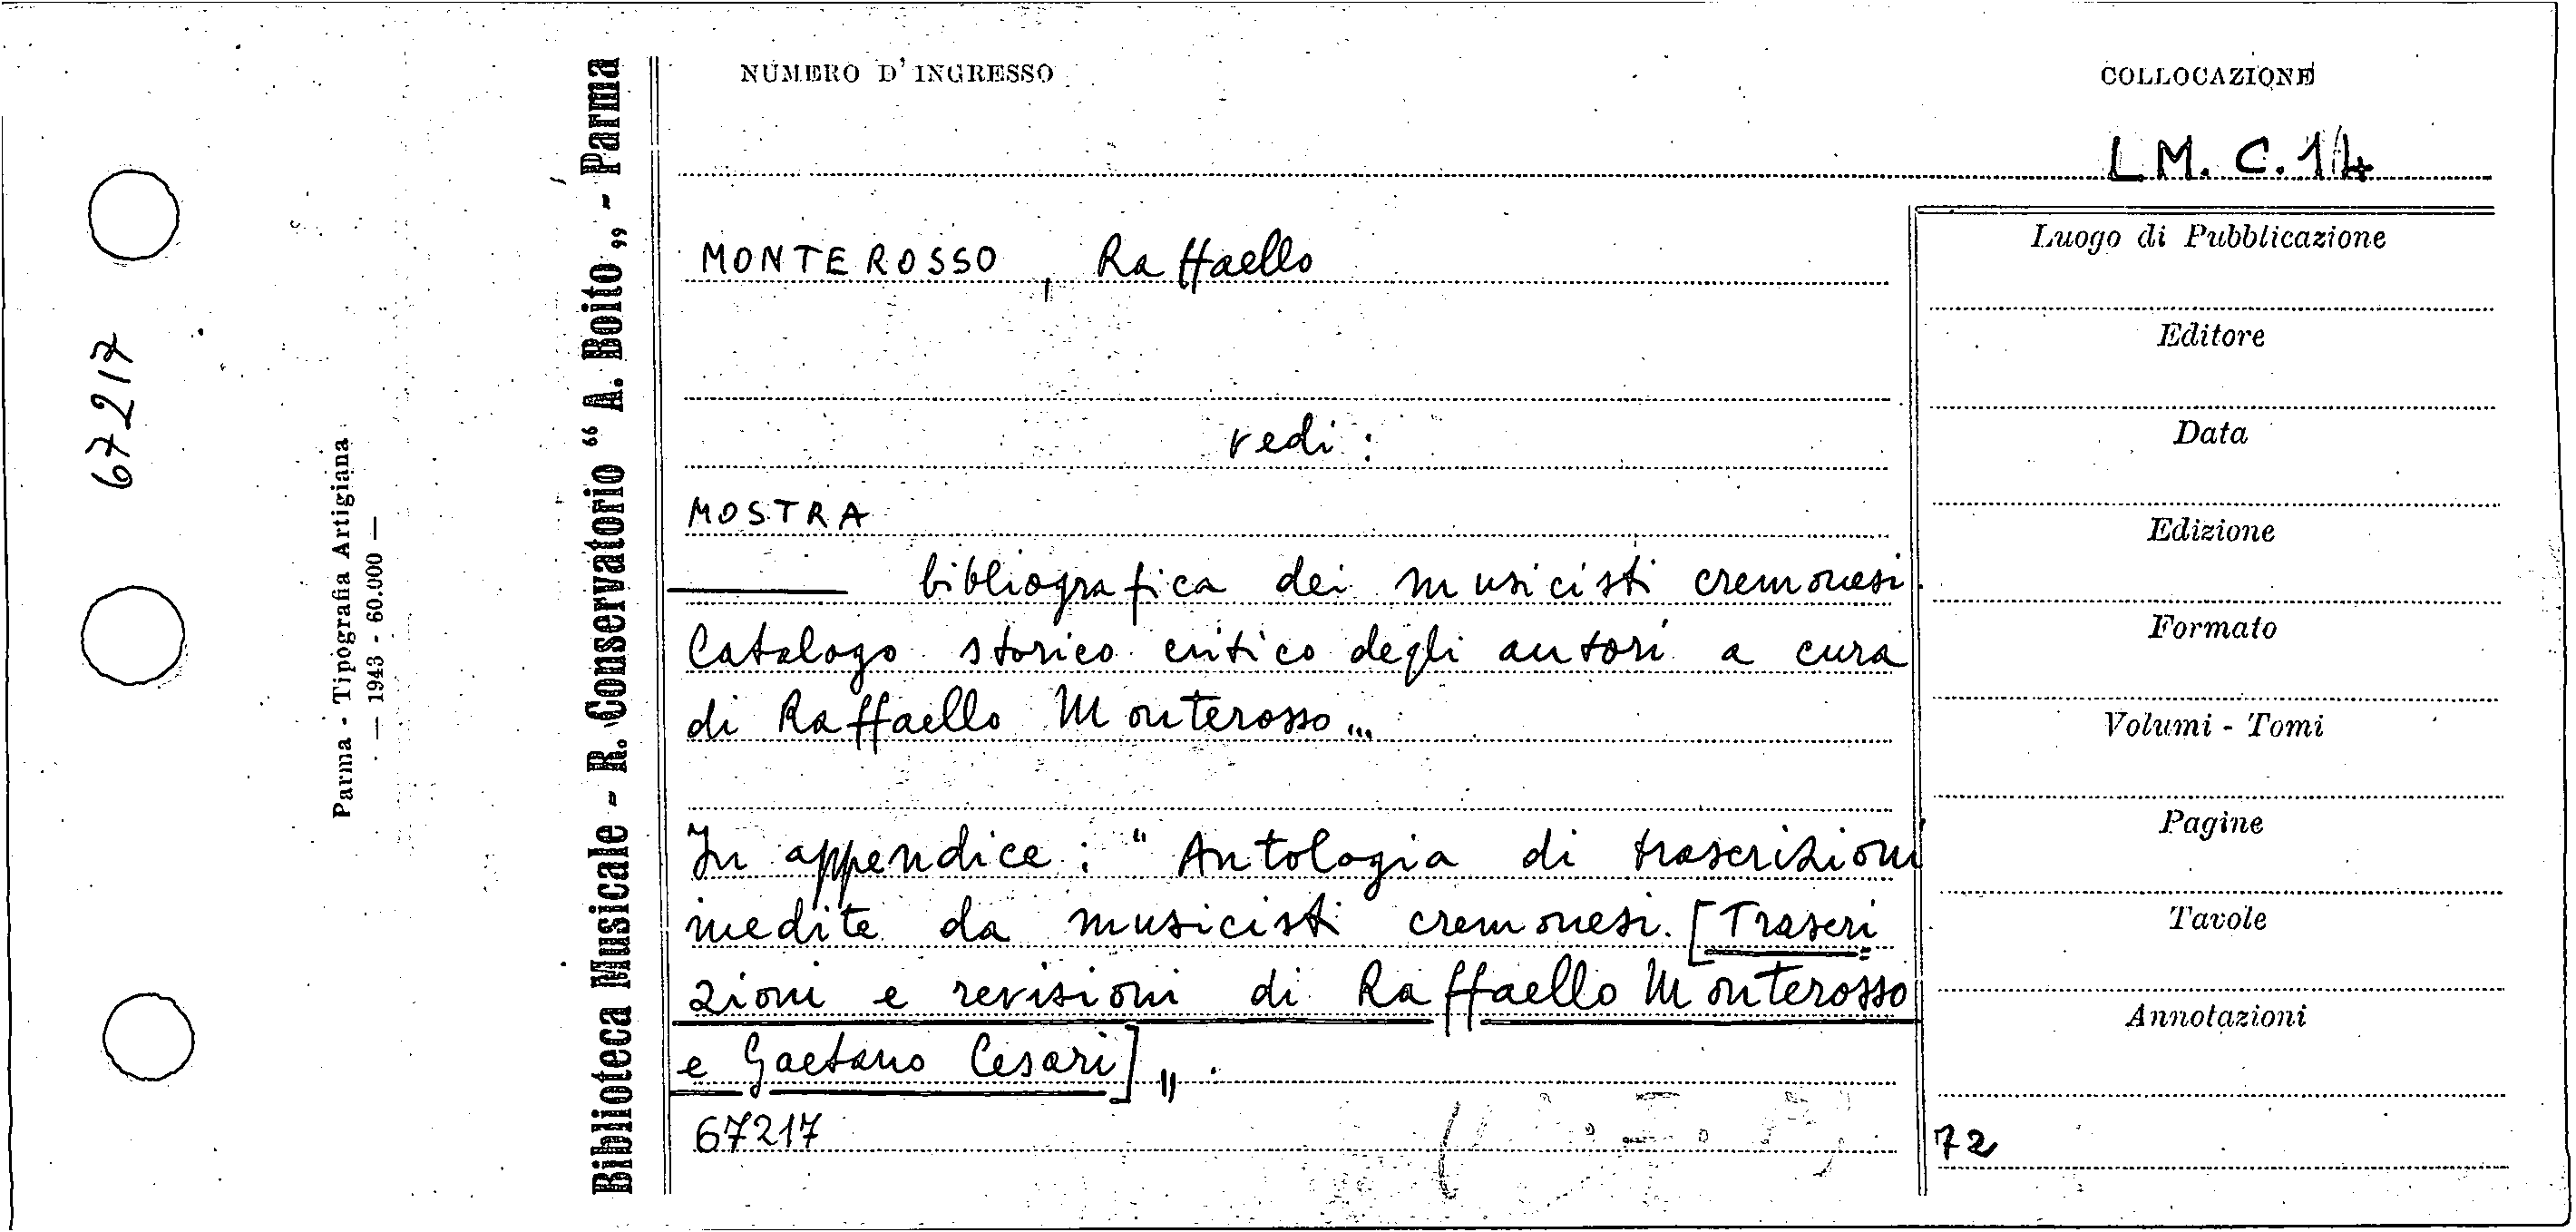 67217
Parma - Tipografia Artigiana
— 1943 - 60.000 —
Biblioteca Musicale - R. Conservatorio “ A. Boito „ - Parma
NUMERO D'INGRESSO
COLLOCAZIONE
L.M. C. 14
MONTEROSSO, Raffaello
vedi :
MOSTRA
——— bibliografica dei musicisti cremonesi.
Catalogo storico critico degli autori a cura
di Raffaello Monterosso...
In appendice : " Antologia di trascrizioni
inedite da musicisti cremonesi. [Trascri=
zioni e revisioni di Raffaello Monterosso
e Gaetano Cesari] „ .
67217
Luogo di Pubblicazione
Editore
Data
Edizione
Formato
Volumi - Tomi
Pagine
Tavole
Annotazioni
72